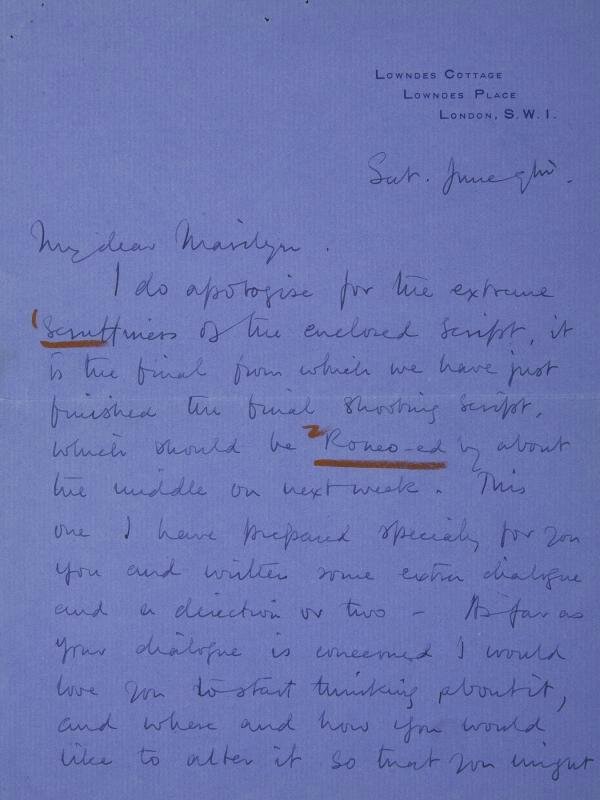 LOWNDES COTTAGE
LOWNDES PLACE
LONDON, S.W.1.
Sat. June 9th.
My dear Marilyn.
I do apologise for the extreme
scruffiness of the enclosed script, it
is the final from which we have just
finished the final shooting script,
which should be Roneo-ed by about
the middle on next week. This
one I have prepared specially for you
you and written some extra dialogue
and a direction or two - As far as
your dialogue is concerned I would
love you to start thinking about it,
and where and how you would
like to alter it so that you might